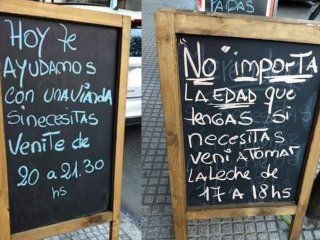 HOY Te
AYUDAMOS
CON UNA VIANDA
SI NECESITAS
VENITE de
20 a 21.30
hs
"NO" importa
LA EDAD que
tengas si
necesitas
veni A TOMAR
LA LECHE de
17 A 18 hs